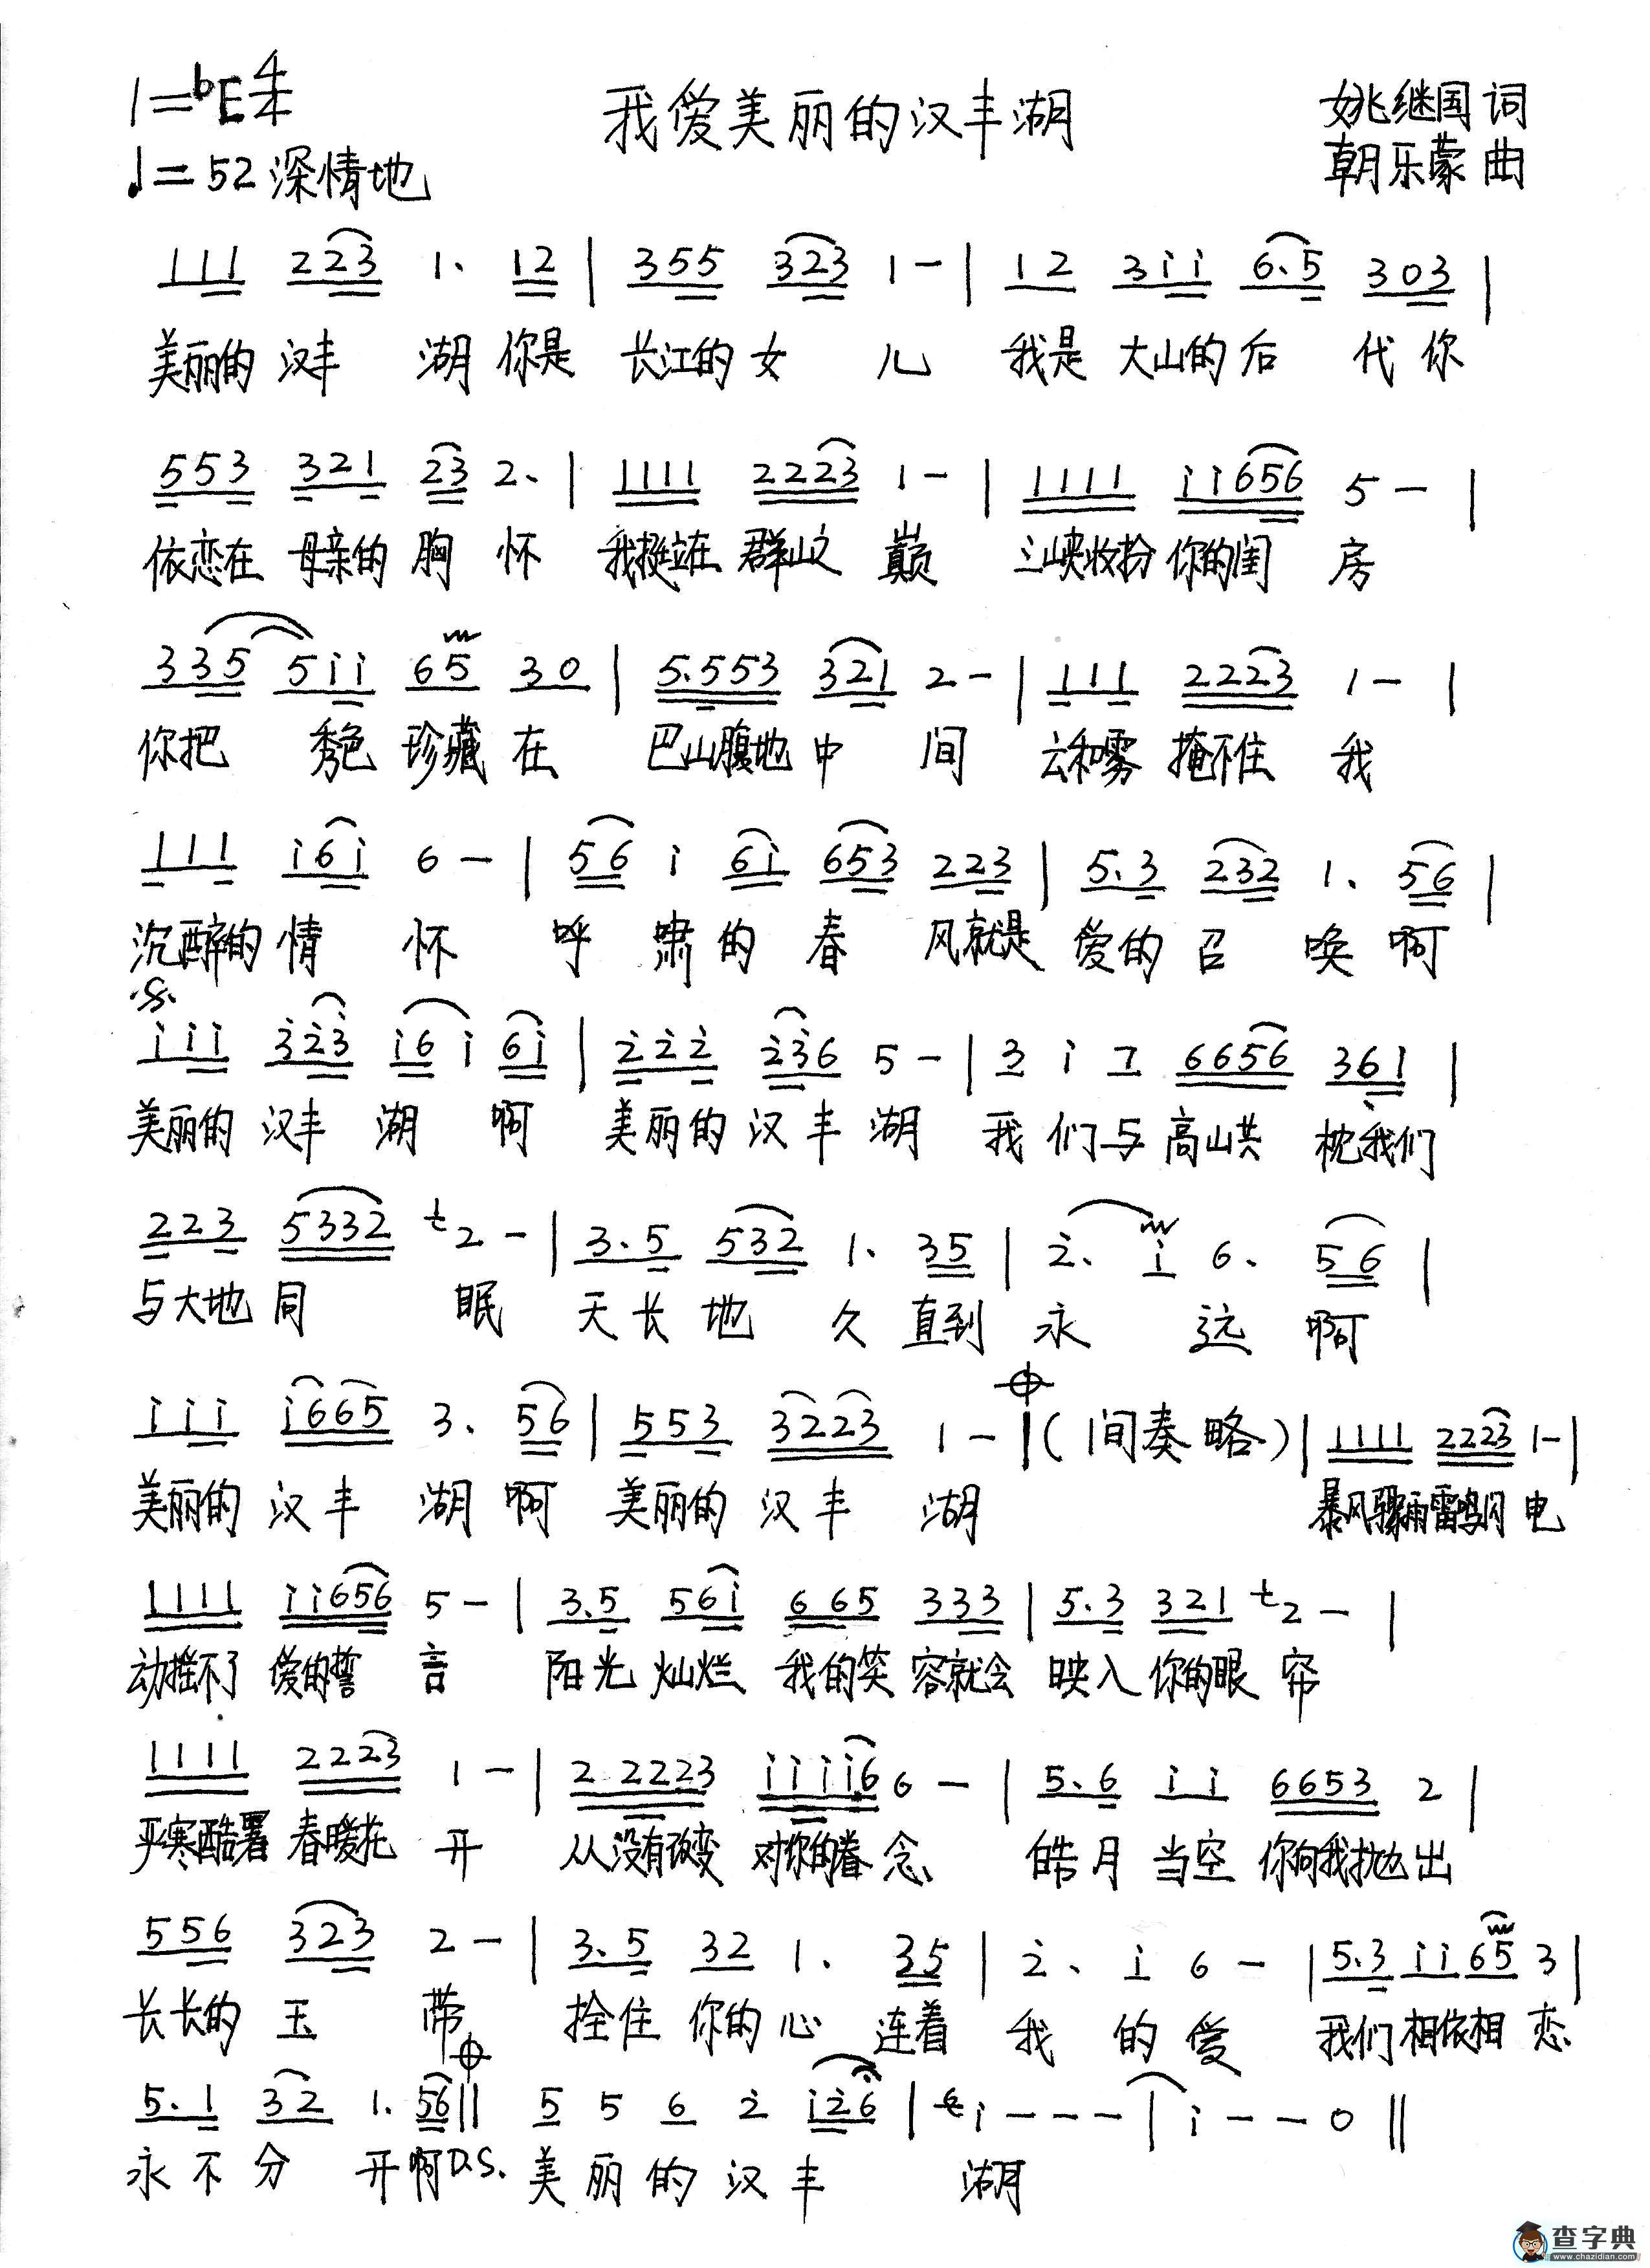 1=♭E 4/4 我爱美丽的汉丰湖 姚继国 词
♩=52 深情地 朝乐蒙 曲
111 223 1. 12 | 355 323 1 - | 12 3i i 6.5 303 |
美丽的 汉丰 湖 你是 长江的 女 儿 我是 大山的 后 代 你
553 321 23 2. | 1111 2223 1 - | 1111 i i656 5 - |
依恋在 母亲的 胸 怀 我挺立在 群山之 巅 三峡收扮 你的闺 房
335 5i i 65 30 | 5.553 321 2 - | 111 2223 1 - |
你把 秀色 珍藏 在 巴山腹地 中 间 云和雾 掩不住 我
111 i6i 6 - | 56 i 6i 653 223 | 5.3 232 1. 56 |
沉醉的 情 怀 呼 啸 的 春 风就是 爱的 召 唤 啊
i i i 3̇2̇3̇ i6 i 6i | 2̇2̇2̇ 2̇3̇6 5 - | 3 i 7 6656 36̣1 |
美丽的 汉丰 湖 啊 美丽的 汉丰 湖 我 们 与 高山共 枕我们
223 5332 2 - | 3.5 532 1. 35 | 2̇. i 6. 56 |
与大地 同 眠 天长 地 久 直到 永 远 啊
i i i i665 3. 56 | 553 3223 1 - | (间奏略) | 1111 2223 1 - |
美丽的 汉丰 湖 啊 美丽的 汉丰 湖 暴风骤雨雷鸣闪 电
1111 i i656 5 - | 3.5 56i 665 333 | 5.3 321 2 - |
动摇不了 爱的誓 言 阳光 灿烂 我的笑 容就会 映入 你的眼 帘
1111 2223 1 - | 2 2223 i i i i6 6 - | 5.6 i i 6653 2 |
严寒酷署 春暖花 开 从没有改变 对你的眷 念 皓月 当空 你向我抛 出
556 323 2 - | 3.5 32 1. 35 | 2̇. i 6 - | 5.3 i i 65 3 |
长长的 玉 带 拴住 你的 心 连着 我 的 爱 我们 相依相 恋
5.1 32 1. 56 || 5 5 6 2̇ i2̇6 | i - - - | i - - 0 ||
永不 分 开啊 D.S. 美 丽 的 汉 丰 湖
查字典
www.chazidian.com